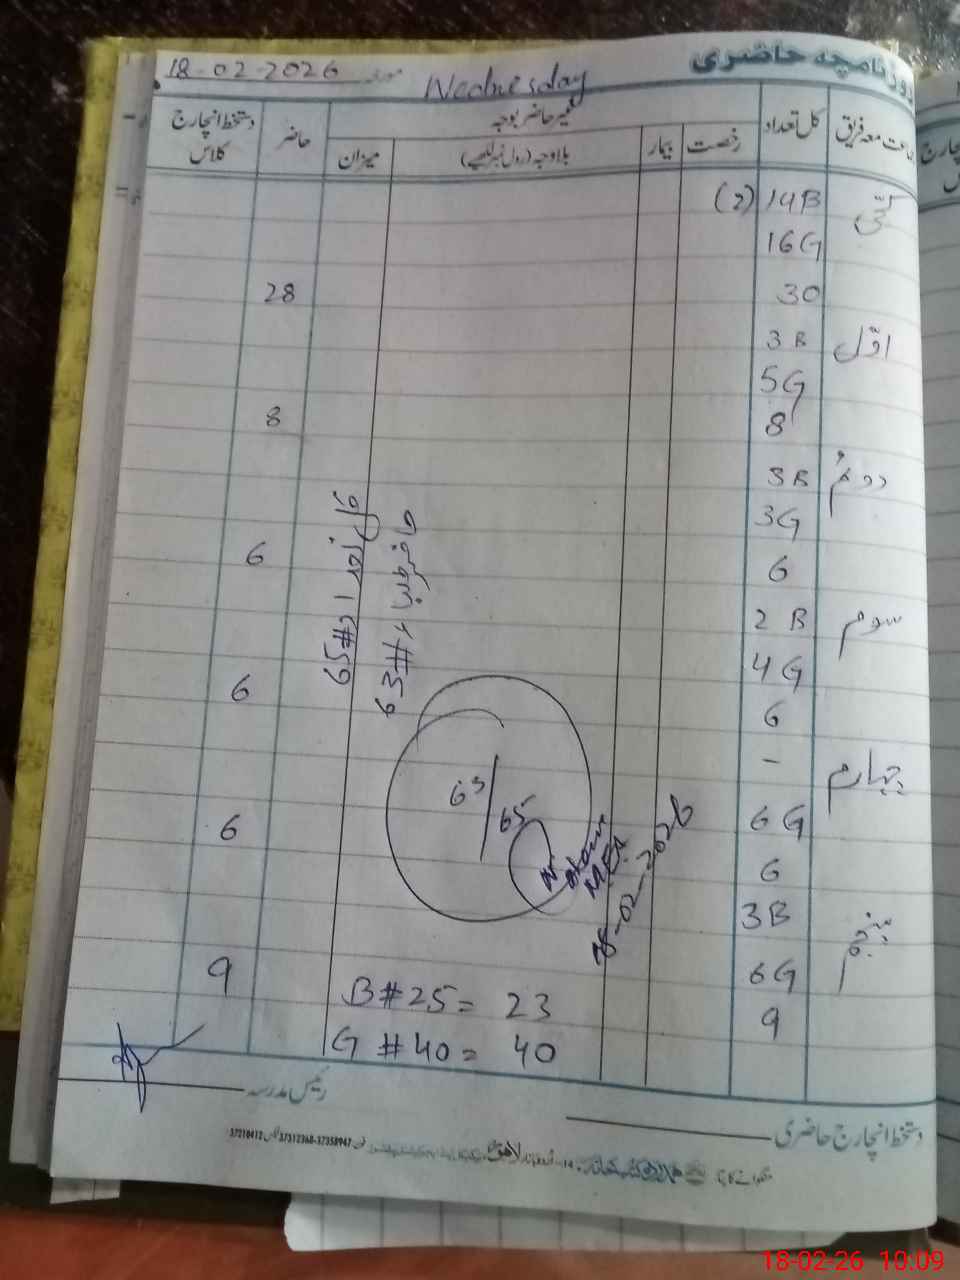 روزنامچہ حاضری
Wednesday
مورخہ 18-02-2026
جماعت معہ فریق کل تعداد غیر حاضر بوجہ حاضر دستخط انچارج کلاس
رخصت بیمار بلاوجہ (رول نمبر لکھیے) میزان
کچی 14B (2)
16G
30 28
اوّل 3B
5G
8 8
دوم 3B
3G
6 6
سوم 2B
4G
6 6
چہارم -
6G
6 6
پنجم 3B
6G
9 9
65#
63#
63/65
18-02-2026
B#25= 23
G #40= 40
رئیس مدرسہ
دستخط انچارج حاضری
لاہور
37312368-37358947
37210412
18-02-26 10:09